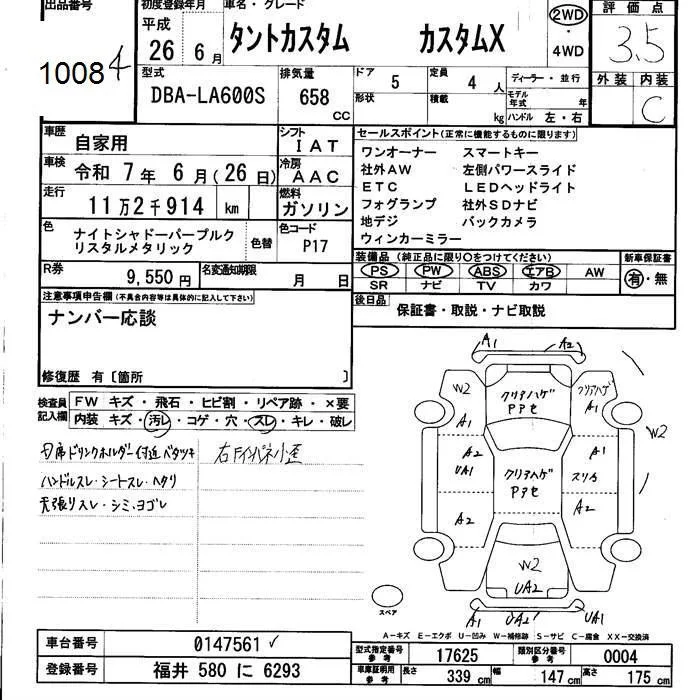 出品番号 初度登録年月 車名・グレード 評価点
平成 26年 6月 タントカスタム カスタムX 2WD・4WD 3.5
10084
型式 排気量 ドア 5 定員 4人 ディーラー・並行 外装 内装
DBA-LA600S 658 CC 形状 積載 kg モデル年式 年 C
ハンドル 左・右
車歴 自家用 シフト IAT セールスポイント(正常に機能するものに限ります)
車検 令和 7年 6月(26日) 冷房 AAC
走行 11万2千914 km 燃料 ガソリン
ワンオーナー スマートキー
社外AW 左側パワースライド
ETC LEDヘッドライト
フォグランプ 社外SDナビ
地デジ バックカメラ
ウィンカーミラー
色 ナイトシャドーパープルク
リスタルメタリック 色替 色コード P17
装備品(純正品に限り○をつけてください) 新車保証書
PS PW ABS エアB AW 有・無
SR ナビ TV カワ
R券 9,550円 名変通知期限 月 日
後日品 保証書・取説・ナビ取説
注意事項申告欄(不具合内容等は具体的に記入して下さい)
ナンバー応談
修復歴 有〔箇所 〕
検査員記入欄 FW キズ・飛石・ヒビ割・リペア跡・×要
内装 キズ・汚レ・コゲ・穴・スレ・キレ・破レ
ドリンクホルダー付近ベタツキ
ハンドルスレ・シートスレ・ヘタリ
天張りスレ・シミ、ヨゴレ
A1 A2
W2 クリアハゲ クリアハゲ
PPセ A1
A1 W2
A2 A1
UA1 クリアハゲ スリ傷
PPセ
A2 A2
W2
UA2
A1 UA2 UA1
スペア
A-キズ E-エクボ U-凹み W-補修跡 S-サビ C-腐食 XX-交換済
車台番号 0147561 型式指定番号 参考 17625 類別区分番号 参考 0004
登録番号 福井 580 に 6293 車庫証明用 参考 長さ 339 cm 幅 147 cm 高さ 175 cm